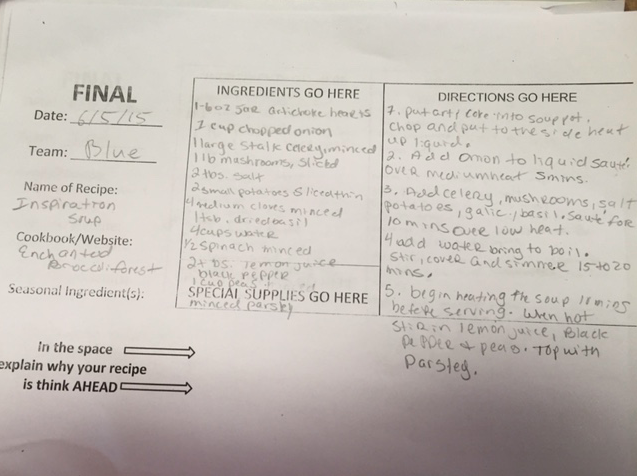 FINAL
Date: 6/5/15
Team: Blue
Name of Recipe:
Inspiration
Soup
Cookbook/Website:
Enchanted
Broccoli forest
Seasonal Ingredient(s):
In the space
explain why your recipe
is think AHEAD
INGREDIENTS GO HERE
1-6oz jar artichoke hearts
1 cup chopped onion
1 large stalk celery, minced
1 lb mushrooms, sliced
2 tbs. salt
2 small potatoes sliced thin
4 medium cloves minced
1 tsb. dried basil
4 cups water
1/2 spinach minced
2 tbs. lemon juice
black pepper
1 cup peas
SPECIAL SUPPLIES GO HERE
minced parsly
DIRECTIONS GO HERE
1. put arti coke into soup pot.
chop and put to the side heat
up liquid.
2. Add onion to liquid sauté
over medium heat 5 mins.
3. Add celery, mushrooms, salt
potatoes, galic, basil, sauté for
10 mins over low heat.
4 add water bring to boil.
stir, cover and simmer 15 to 20
mins.
5. begin heating the soup 11 mins
before serving. when hot
stir in lemon juice, black
pepper + peas. Top with
Parsley.